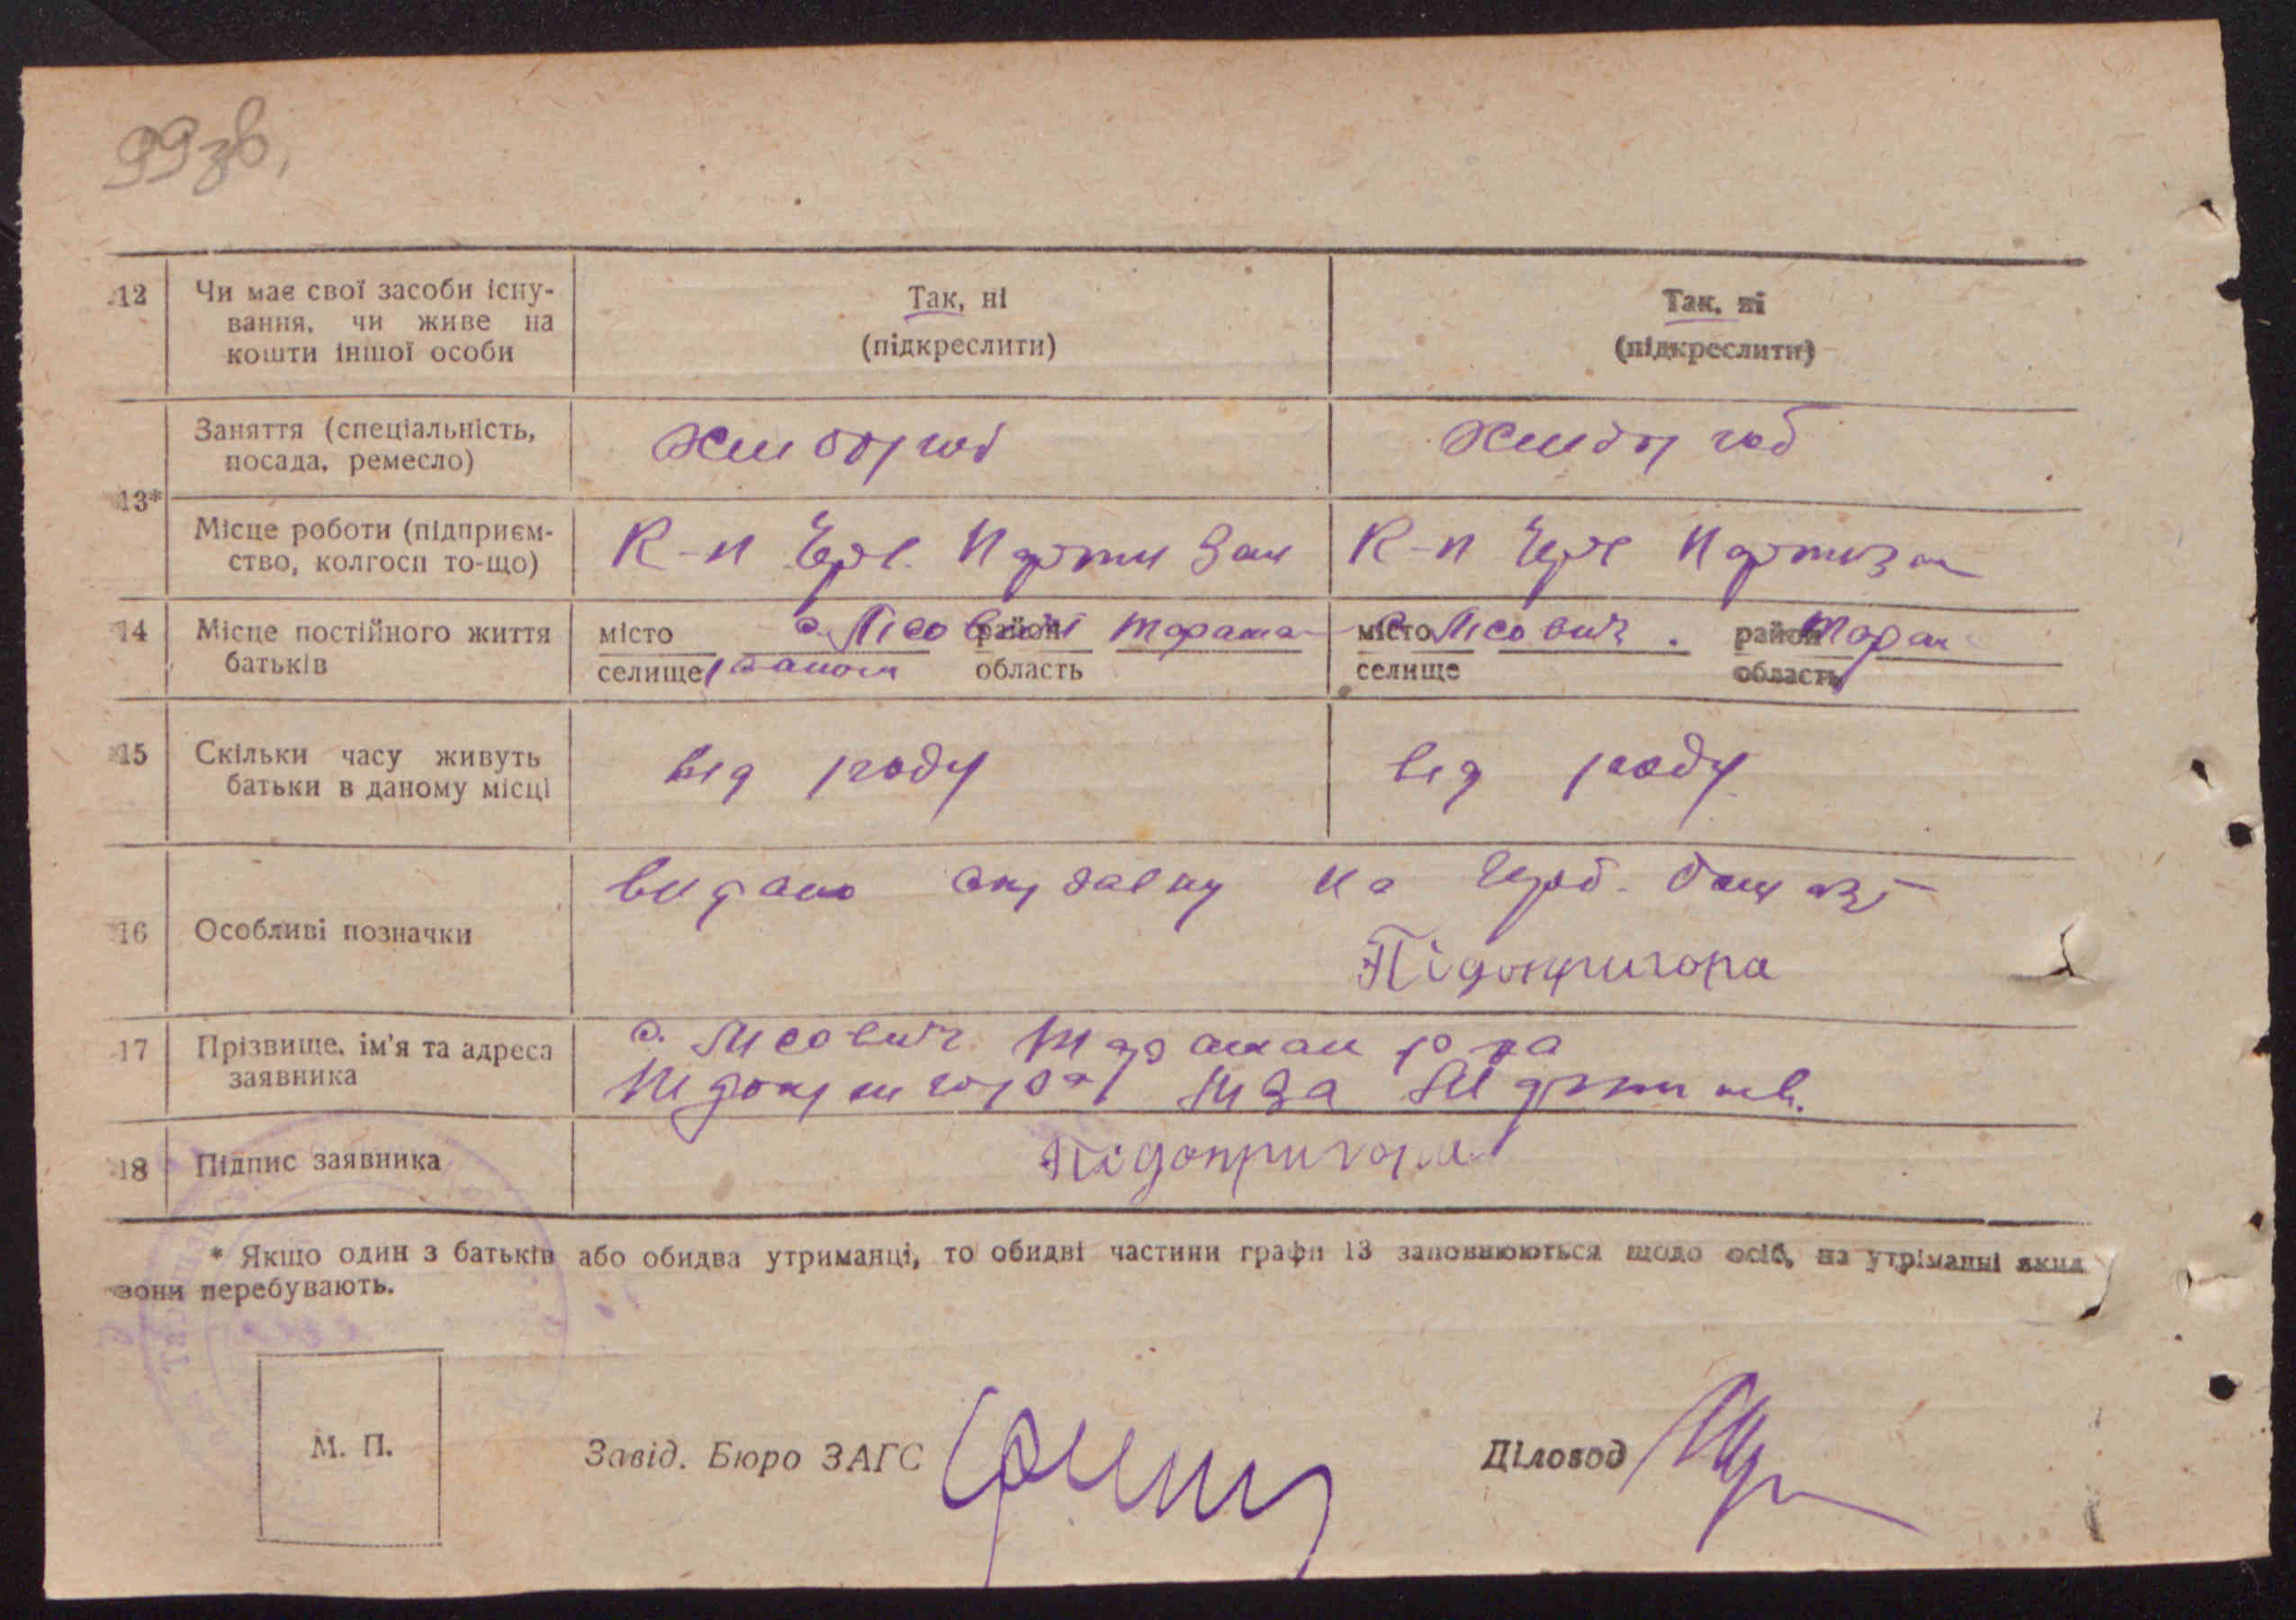 99зв,
12 Чи має свої засоби існу-
вання, чи живе на
кошти іншої особи
Так, ні
(підкреслити)
Так, ні
(підкреслити)
13*
Заняття (спеціальність,
посада, ремесло)
хлибороб
хлибороб
Місце роботи (підприєм-
ство, колгосп то-що)
К-п Черв. Партизан
К-п Черв Партизан
14 Місце постійного життя
батьків
місто с. Лісовичі район Тараща
селище область
місто с. Лісович. район Таращ
селище область
15 Скільки часу живуть
батьки в даному місці
від роду
від роду
16 Особливі позначки
видано на
Підопригора
17 Прізвище, ім'я та адреса
заявника
с. Лісович Таращан р-на
Підопригора
18 Підпис заявника
Підопригора
* Якщо один з батьків або обидва утриманці, то обидві частини графи 13 заповнюються щодо осіб, на утріманні яких
вони перебувають.
М. П.
Завід. Бюро ЗАГС
Діловод